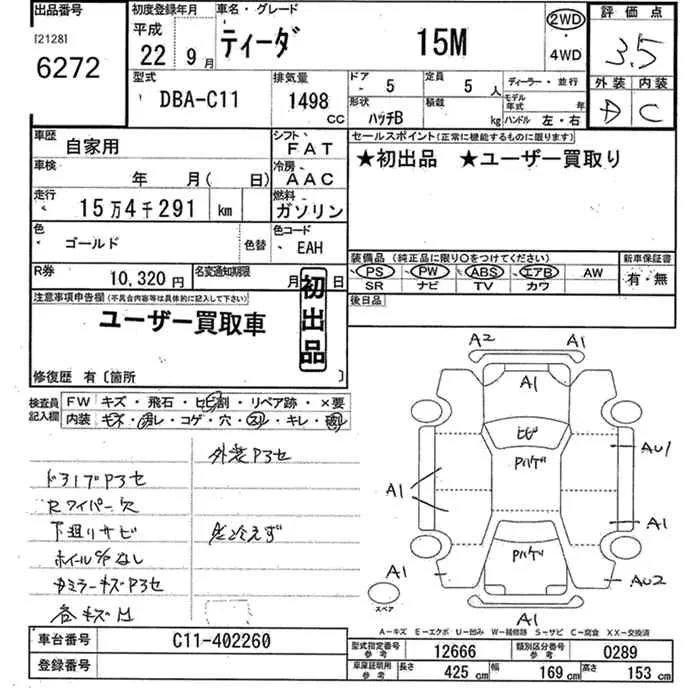 出品番号 初度登録年月 車名・グレード 評価点
[2128] 平成 ティーダ 15M 2WD・4WD 3.5
6272 22年 9月
型式 排気量 ドア 5 定員 5人 ディーラー・並行 外装 内装
DBA-C11 1498cc 形状 ハッチB 積載 kg モデル年式 年 ハンドル 左・右 C
車歴 自家用 シフト FAT セールスポイント(正常に機能するものに限ります)
車検 年 月( 日) 冷房 AAC ★初出品 ★ユーザー買取り
走行 15万4千291 km 燃料 ガソリン
色 ゴールド 色替 色コード EAH
装備品(純正品に限り○をつけてください) 新車保証書
PS PW ABS エアB AW 有・無
SR ナビ TV カワ
R券 10,320円 名変通知期限 月 日 後日品
注意事項申告欄(不具合内容等は具体的に記入して下さい)
ユーザー買取車 初出品
修復歴 有〔箇所 〕
検査員記入欄 FW キズ・飛石・ヒビ割・リペア跡・×要
内装 キズ・汚レ・コゲ・穴・スレ・キレ・破レ
外装P3セ
Rワイパー欠
下廻りサビ
ホイールC/Pなし
各キズ
A2 A1
A1
ヒビ
Pハゲ AU1
A1 A1
A1 Pハゲ AU2
A1
スペア
A-キズ E-エクボ U-凹み W-補修跡 S-サビ C-腐食 XX-交換済
車台番号 C11-402260 型式指定番号 参考 12666 類別区分番号 参考 0289
登録番号 車庫証明用 参考 長さ 425cm 幅 169cm 高さ 153cm